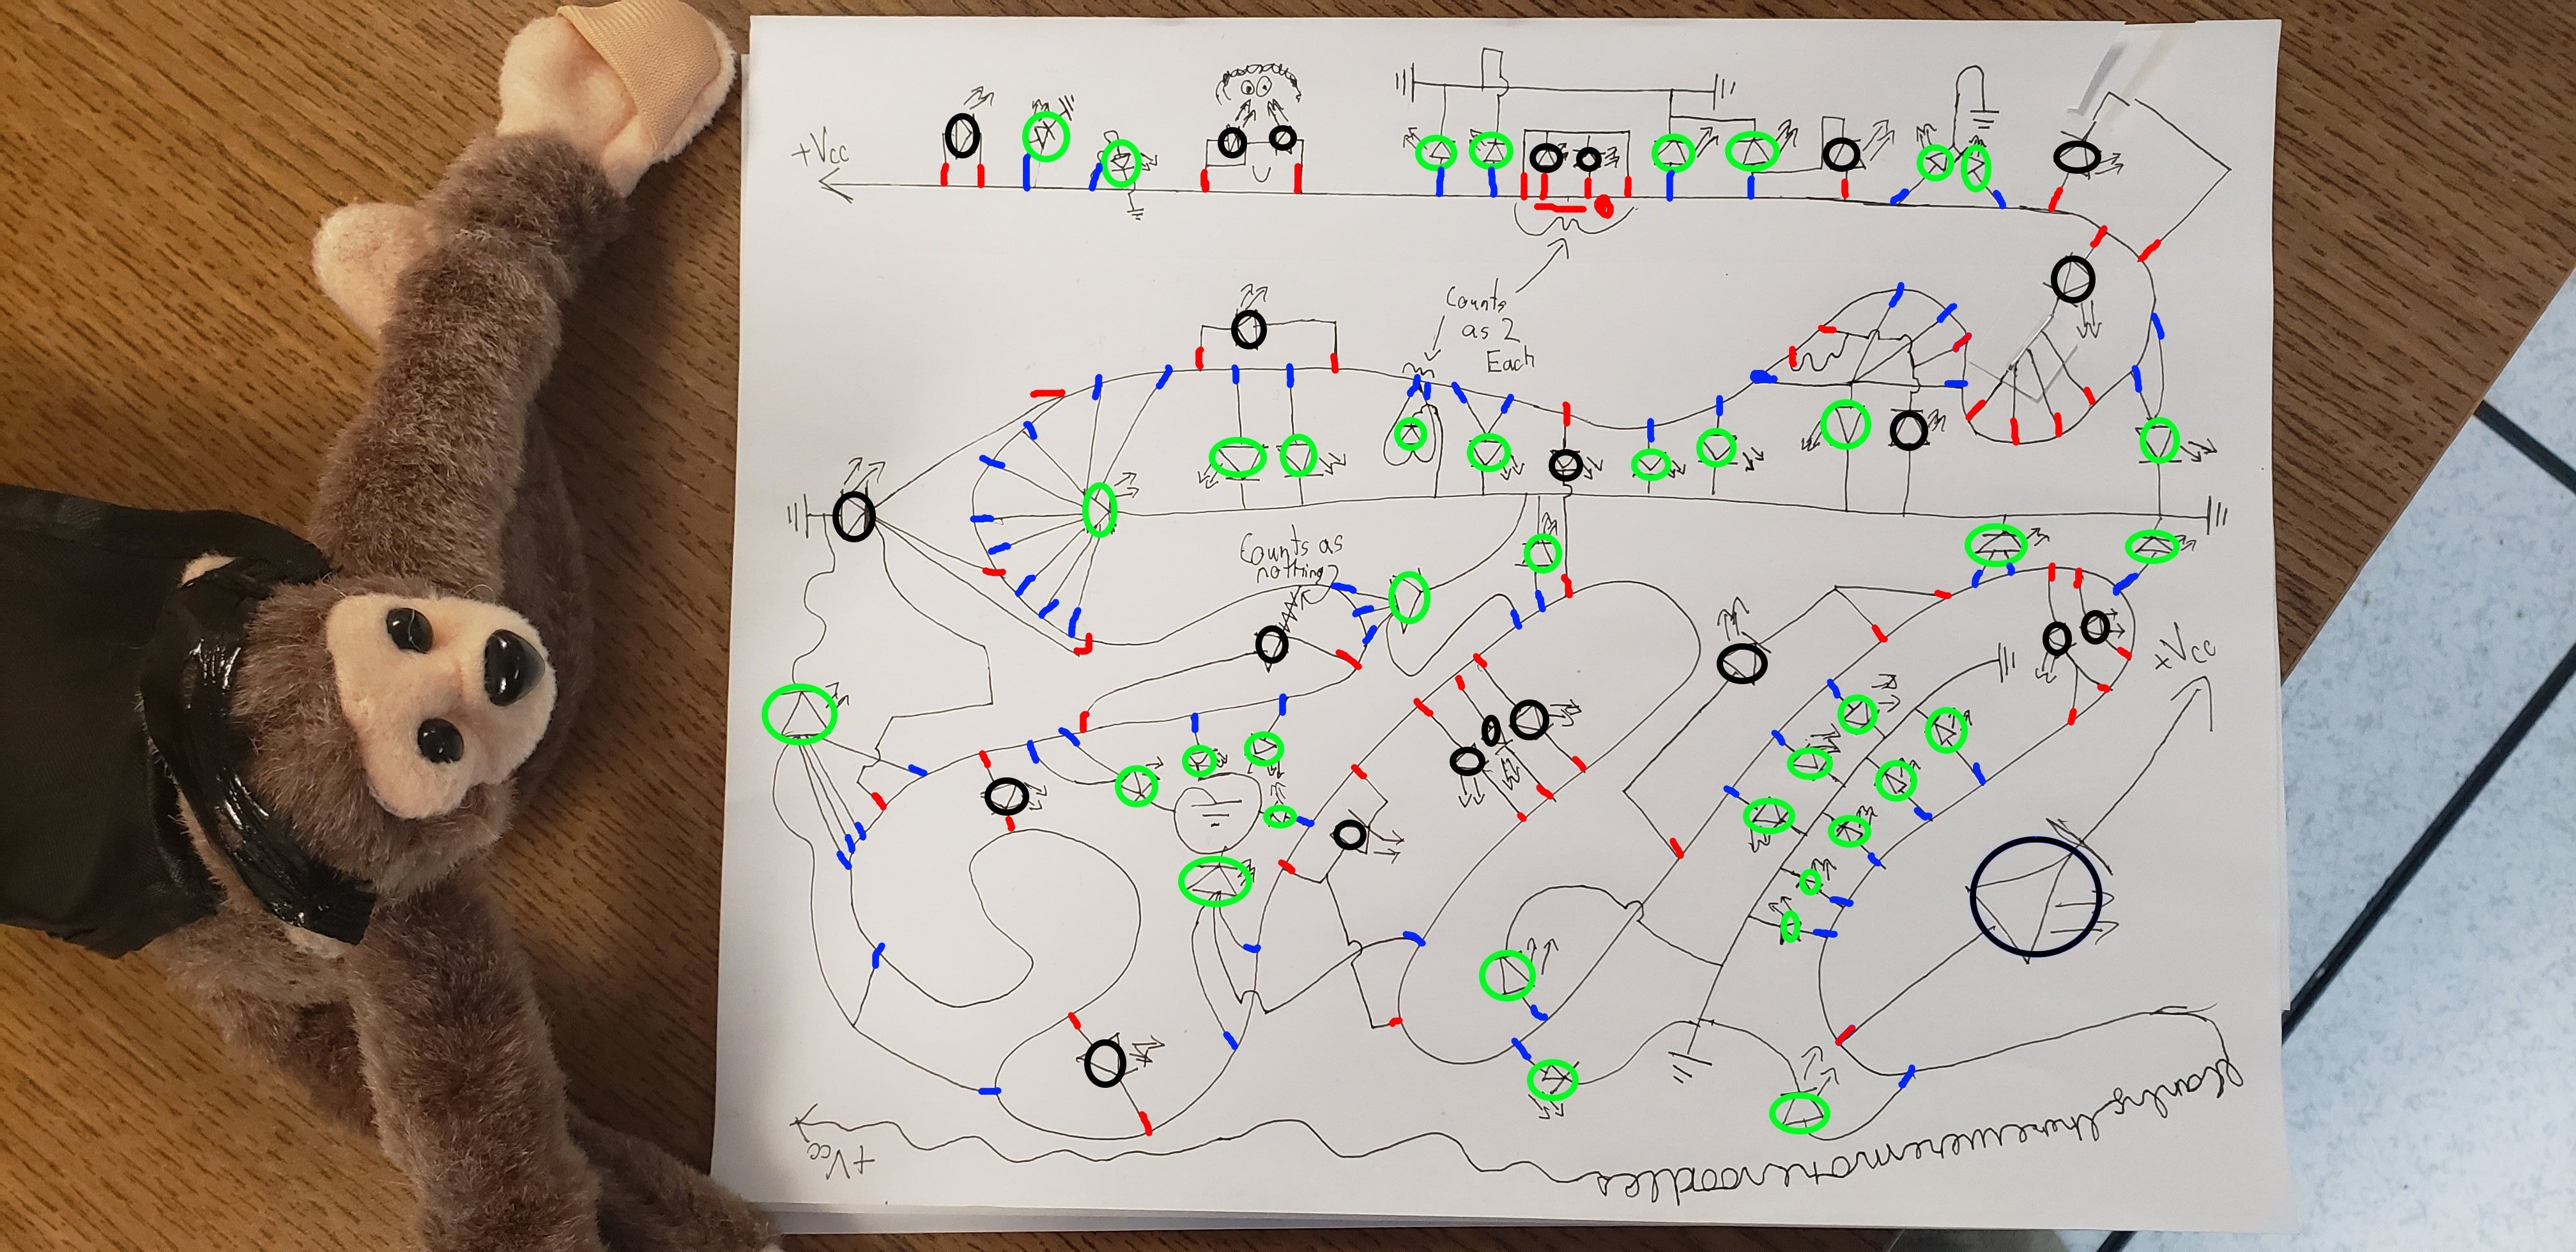 +Vcc
Counts
as 2
Each
Counts as
nothing
+Vcc
+Vcc
Blamlythereweremorenoodles